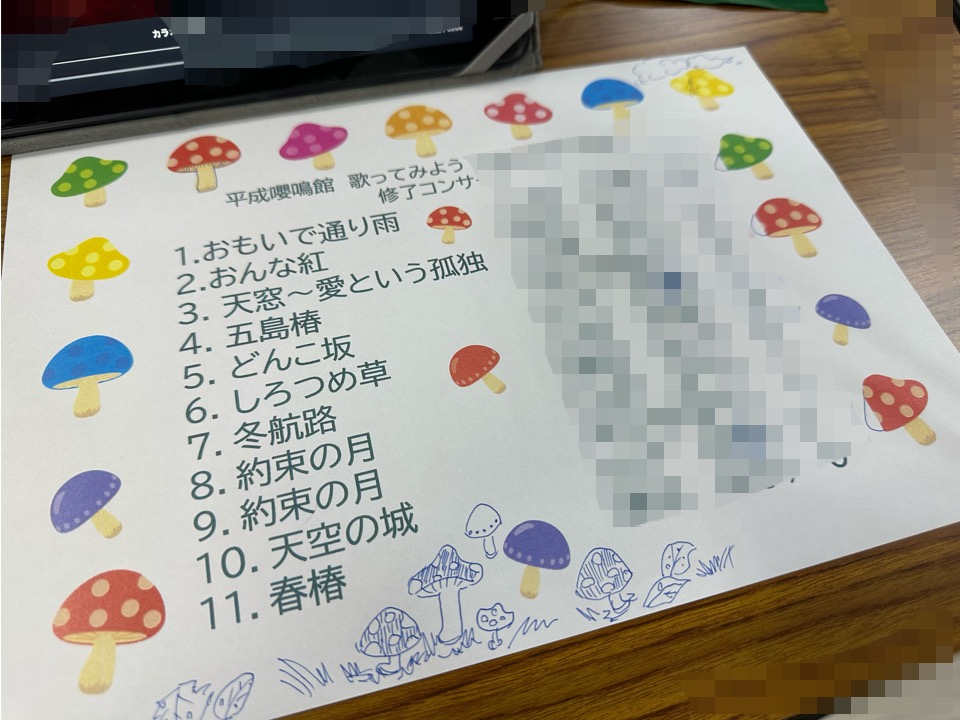 カラ
平成嚶鳴館 歌ってみよう
修了コンサ
1.おもいで通り雨
2.おんな紅
3. 天窓～愛という孤独
4. 五島椿
5. どんこ坂
6. しろつめ草
7. 冬航路
8. 約束の月
9. 約束の月
10. 天空の城
11. 春椿